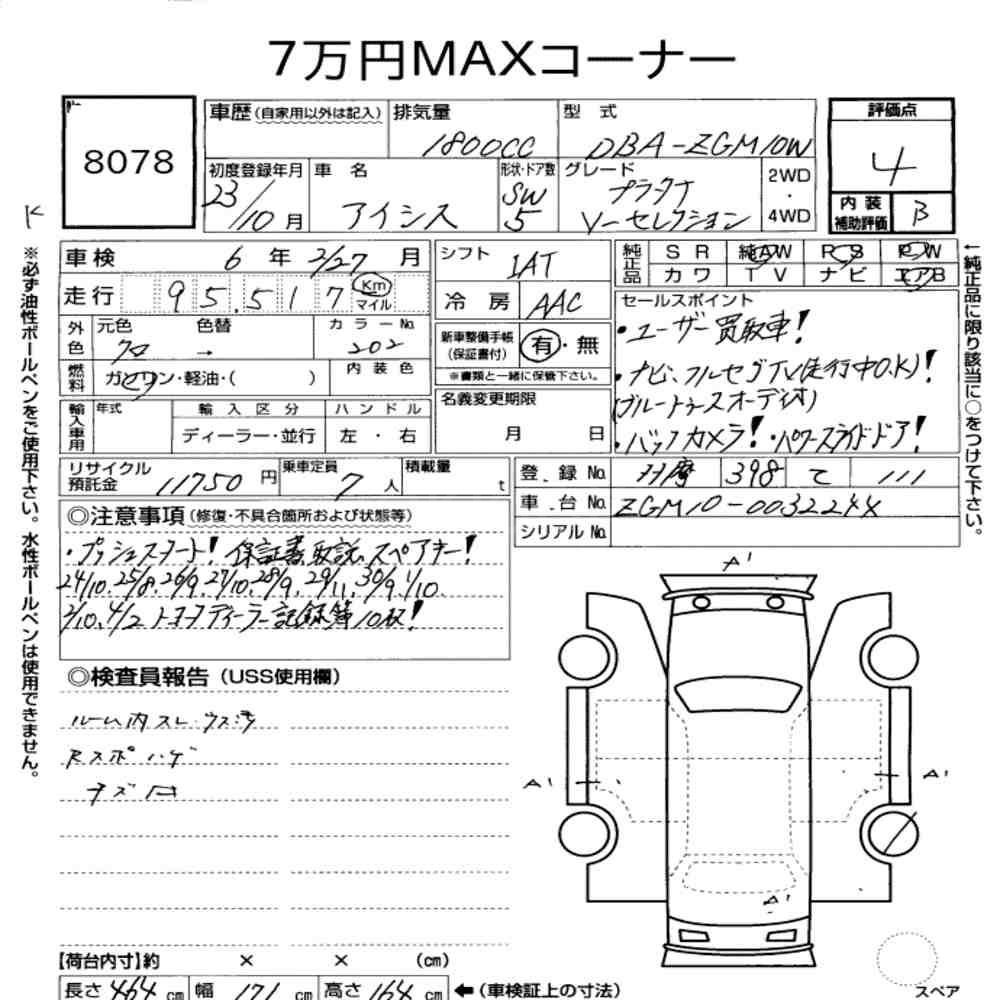 7万円MAXコーナー
8078
車歴(自家用以外は記入) 排気量 1800CC 型式 DBA-ZGM10W
評価点 4
初度登録年月 23/10月 車名 アイシス 形状・ドア数 SW 5 グレード プラタナ V-セレクション 2WD・4WD
内装補助評価 B
K
※必ず油性ボールペンをご使用下さい。水性ボールペンは使用できません。
車検 6年 2/27月
走行 95,517 Km マイル
外色 元色 クロ 色替 → カラーNo. 202
燃料 ガソリン・軽油・( ) 内装色
輸入車用 年式 輸入区分 ディーラー・並行 ハンドル 左・右
シフト IAT
冷房 AAC
新車整備手帳(保証書付) 有・無
※書類と一緒に保管下さい。
名義変更期限 月 日
純正品 SR 純AW RS PW
カワ TV ナビ エアB
セールスポイント
・ユーザー買取車!
・ナビ、フルセグTV(走行中O.K)!
(ブルートゥースオーディオ)
・バックカメラ!・パワースライドドア!
←純正品に限り該当に○をつけて下さい。
リサイクル預託金 11750円 乗車定員 7人 積載量 t
登録No. 398 て 111
車台No. ZGM10-0032244
シリアルNo.
◎注意事項(修復・不具合箇所および状態等)
・プッシュスタート!保証書、取説、スペアキー!
24/10. 25/8. 26/9. 27/10. 28/9. 29/11. 30/9. 1/10.
2/10. 4/2 トヨタディーラー記録簿10枚!
◎検査員報告(USS使用欄)
ルーム内スレ・ウス汚
Rスポハゲ
キズ凹
A¹
A¹
A¹
A¹
【荷台内寸】約 × × (cm)
長さ 464cm 幅 171cm 高さ 164cm ←(車検証上の寸法)
スペア